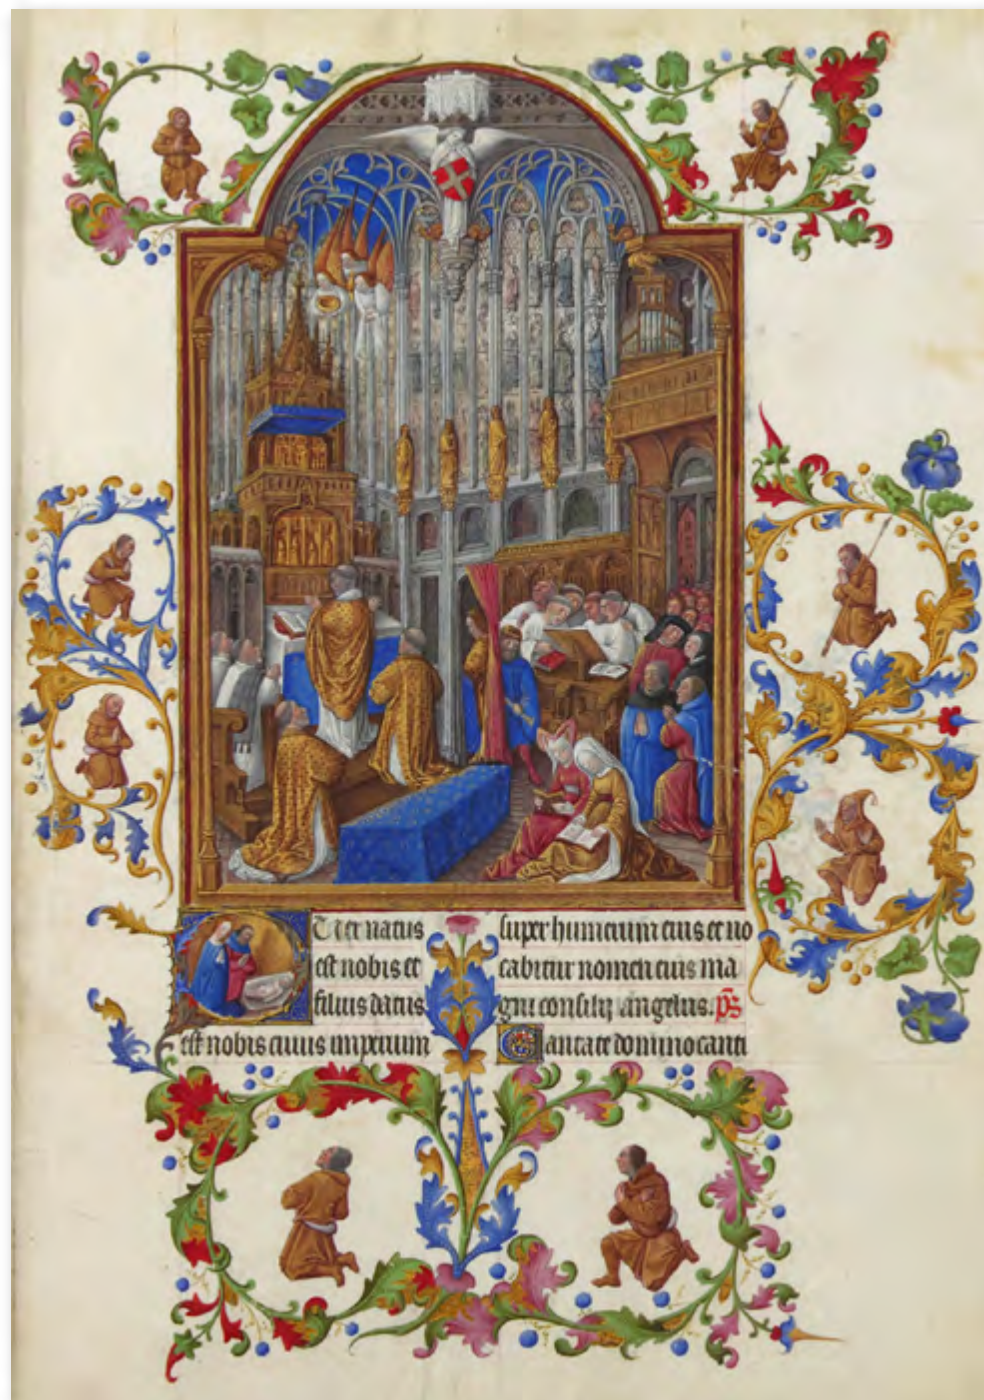 Puer natus
est nobis et
filius datus
est nobis cuius imperium
super humerum eius et uo
cabitur nomen eius ma
gni consilij angelus. p̄s
Cantate domino canti